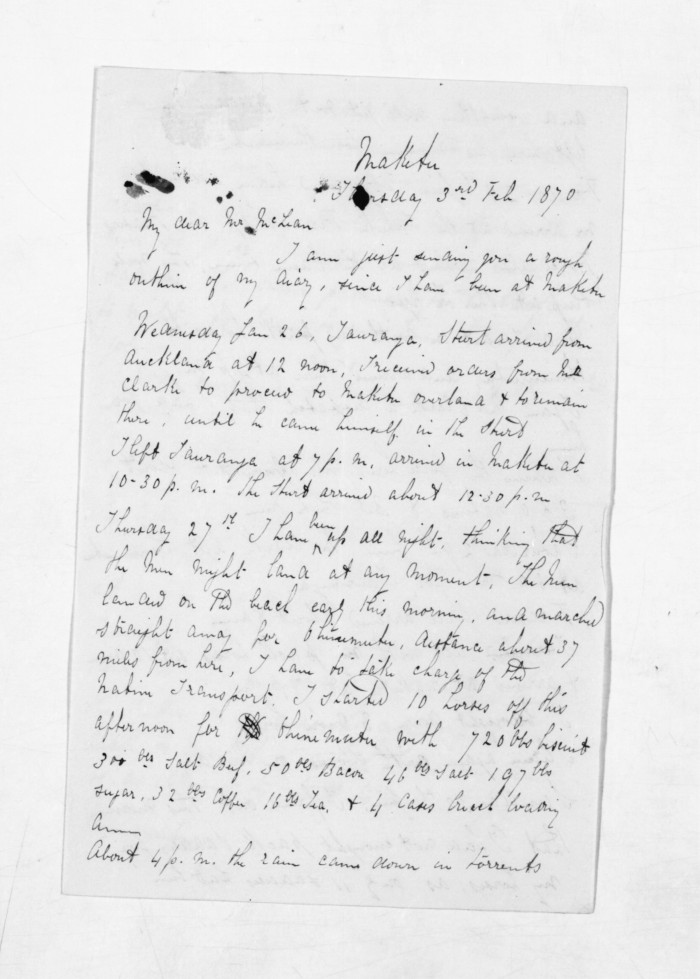 Maketu
Thursday 3rd Feb 1870
My dear Mr McLean
I am just sending you a rough
outline of my diary, since I have been at Maketu
Wednesday Jan 26, Tauranga, Sturt arrived from
Auckland at 12 noon, I received orders from Mr
Clarke to proceed to Maketu overland & to remain
there, until he came himself in the Sturt
I left Tauranga at 7 p.m, arrived in Maketu at
10-30 p.m. The Sturt arrived about 12-30 p.m
Thursday 27th I have been up all night, thinking that
the men might land at any moment, The men
landed on the beach early this morning, and marched
straight away for Ohinemutu, distance about 37
miles from here, I have to take charge of the
Native Transport. I started 10 horses off this
afternoon for Ohinemutu with 720 lbs biscuit
300 lbs Salt Beef, 50 lbs Bacon 46 lbs Salt 197 lbs
sugar, 32 lbs Coffee, 16 lbs Tea, & 4 Cases breech loading
Amn
About 4 p.m. the rain came down in torrents